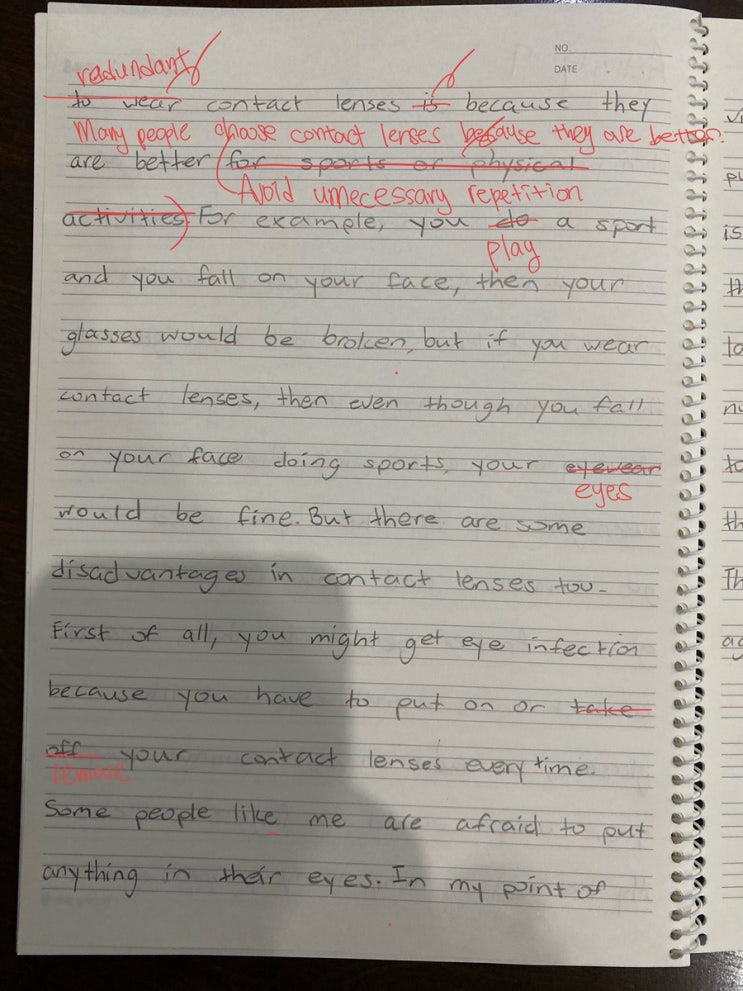 NO.
DATE
redundant
to wear contact lenses is because they
Many people choose contact lenses because they are better.
are better for sports or physical
Avoid unnecessary repetition
activities. For example, you do a sport
play
and you fall on your face, then your
glasses would be broken, but if you wear
contact lenses, then even though you fall
on your face doing sports, your eyewear
eyes
would be fine. But there are some
disadvantages in contact lenses too.
First of all, you might get eye infection
because you have to put on or take
off your contact lenses every time.
remove
Some people like me are afraid to put
anything in their eyes. In my point of
is
to